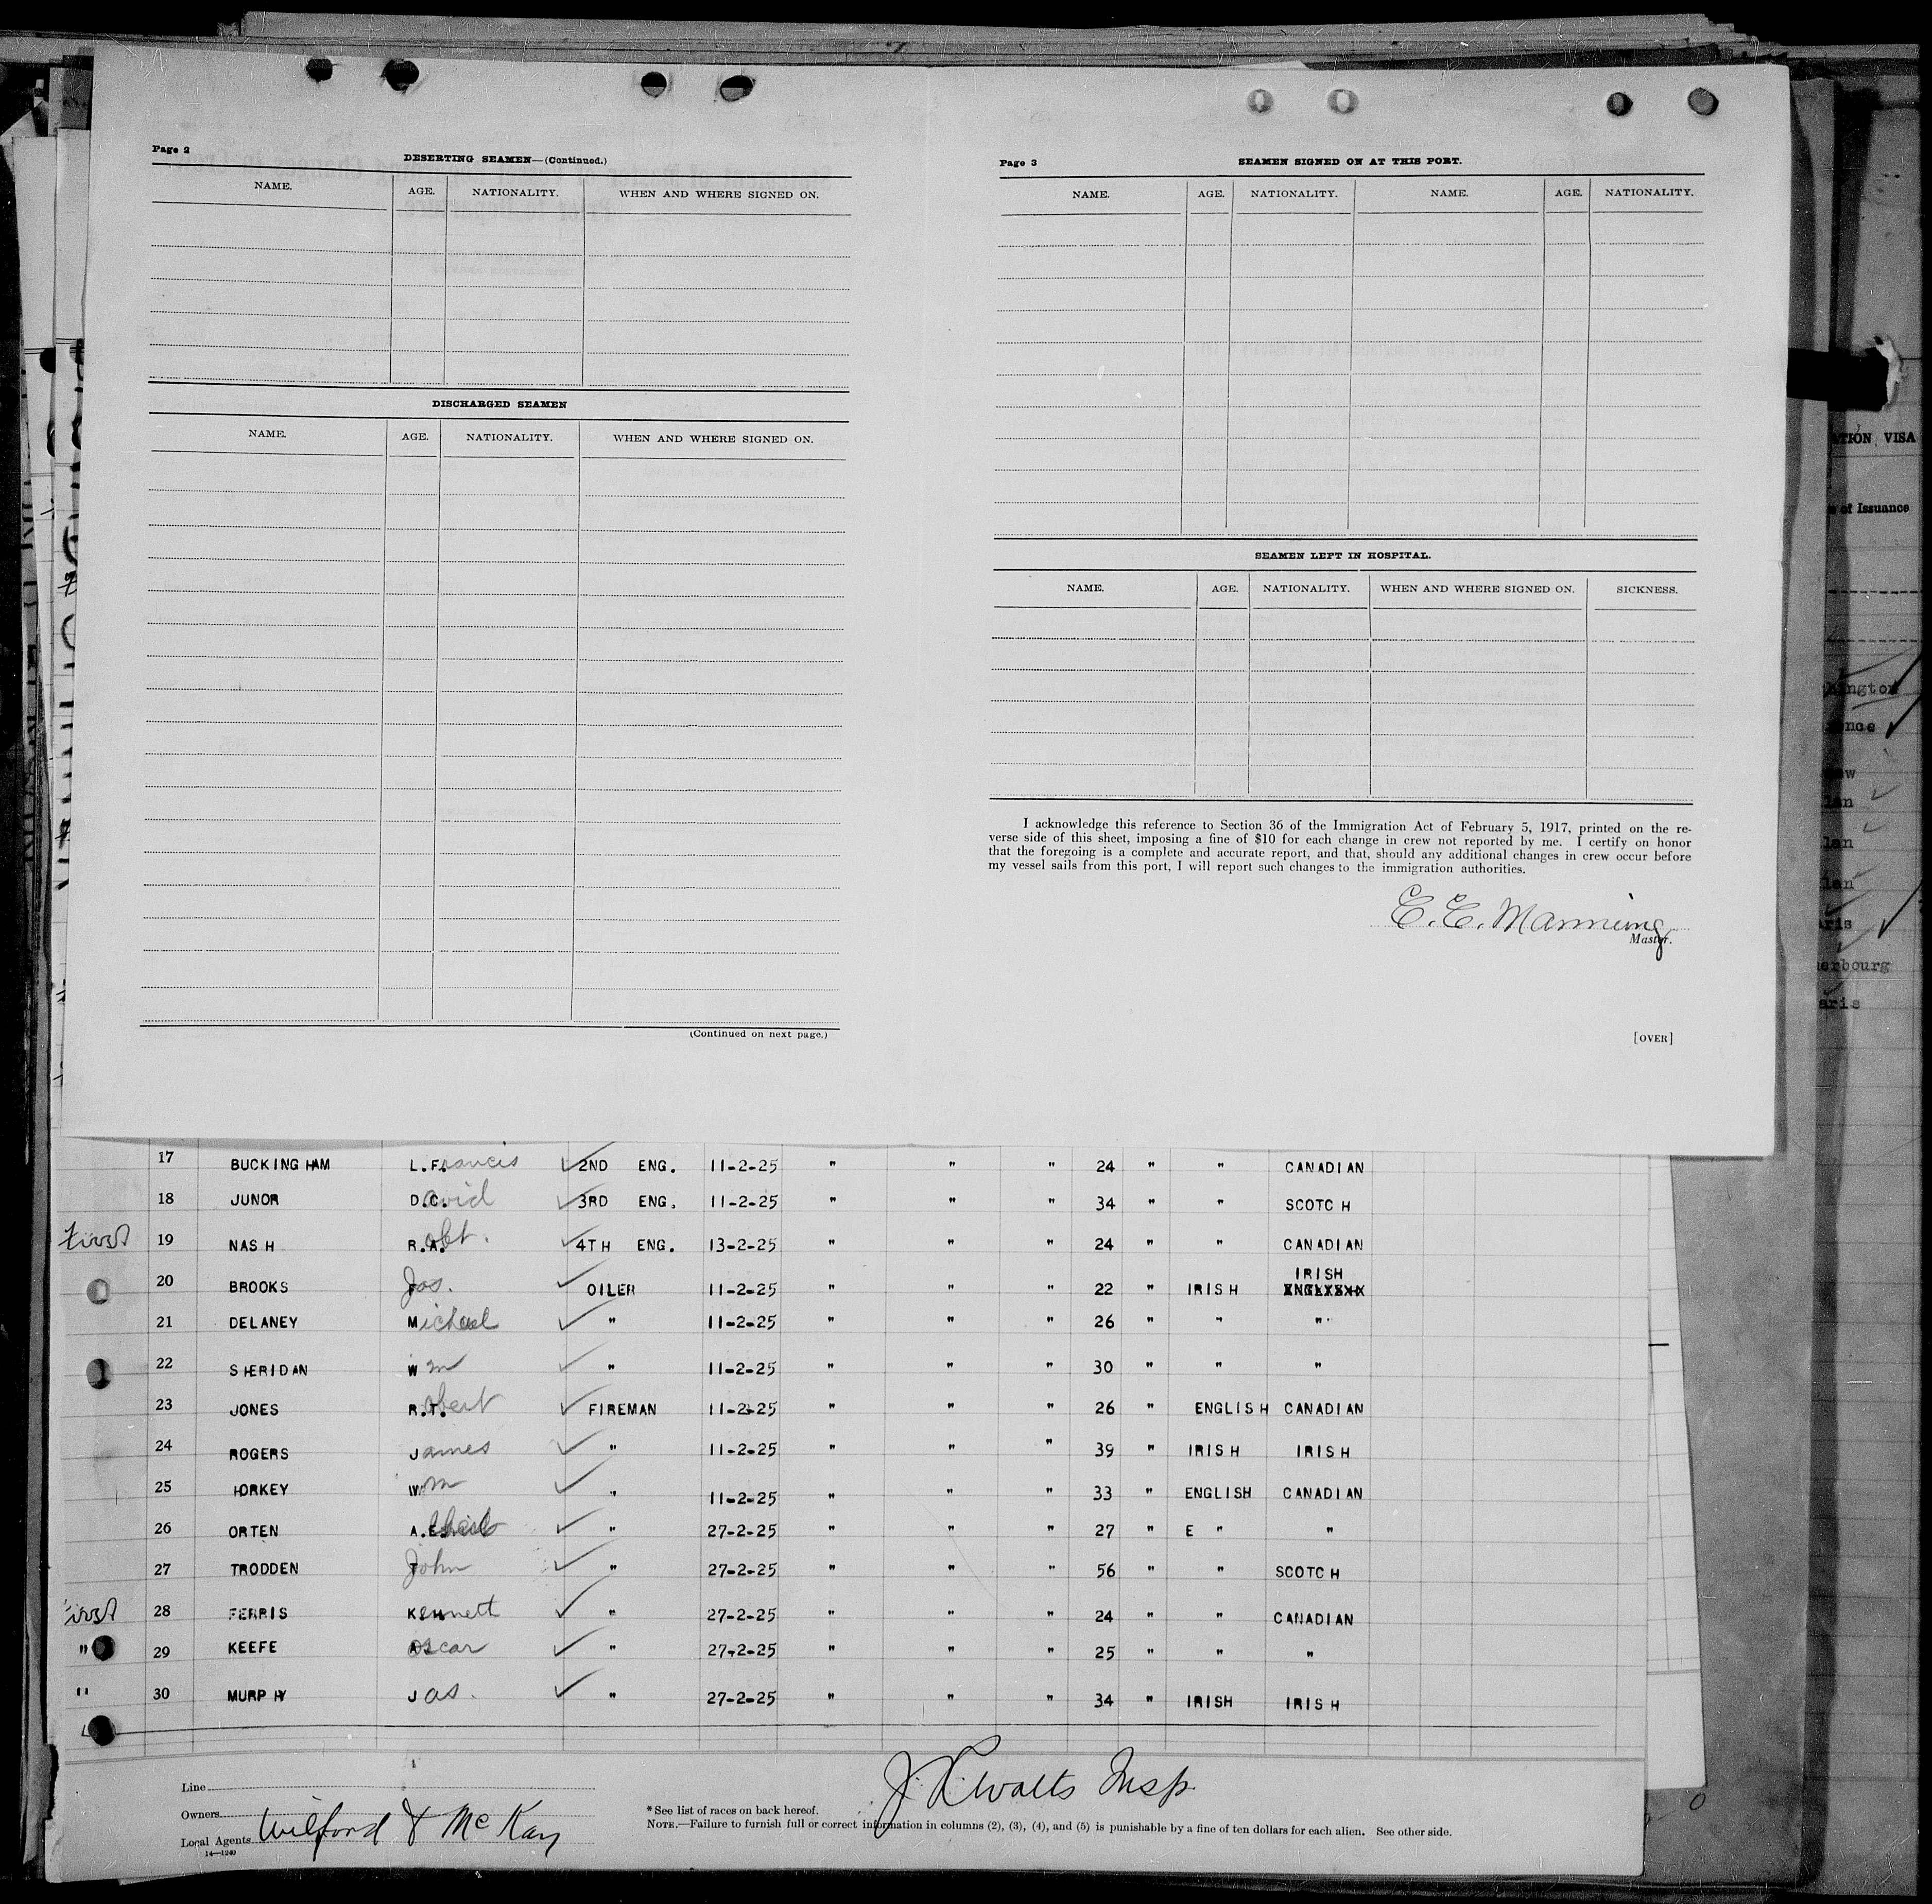 Page 2
DESERTING SEAMEN—(Continued.)
NAME. AGE. NATIONALITY. WHEN AND WHERE SIGNED ON.
DISCHARGED SEAMEN
NAME. AGE. NATIONALITY. WHEN AND WHERE SIGNED ON.
(Continued on next page.)
Page 3
SEAMEN SIGNED ON AT THIS PORT.
NAME. AGE. NATIONALITY. NAME. AGE. NATIONALITY.
SEAMEN LEFT IN HOSPITAL.
NAME. AGE. NATIONALITY. WHEN AND WHERE SIGNED ON. SICKNESS.
I acknowledge this reference to Section 36 of the Immigration Act of February 5, 1917, printed on the re-
verse side of this sheet, imposing a fine of $10 for each change in crew not reported by me. I certify on honor
that the foregoing is a complete and accurate report, and that, should any additional changes in crew occur before
my vessel sails from this port, I will report such changes to the immigration authorities.
E. E. Manning
Master.
[OVER]
VISA
of Issuance
17 BUCKINGHAM L. Francis 2ND ENG. 11-2-25 " " " 24 " " CANADIAN
18 JUNOR David 3RD ENG. 11-2-25 " " " 34 " " SCOTCH
First 19 NASH Robt. 4TH ENG. 13-2-25 " " " 24 " " CANADIAN
20 BROOKS Jas. OILER 11-2-25 " " " 22 " IRISH IRISH
21 DELANEY Michael " 11-2-25 " " " 26 " " "
22 SHERIDAN Wm " 11-2-25 " " " 30 " " "
23 JONES Robert FIREMAN 11-2-25 " " " 26 " ENGLISH CANADIAN
24 ROGERS James " 11-2-25 " " " 39 " IRISH IRISH
25 HORKEY Wm " 11-2-25 " " " 33 " ENGLISH CANADIAN
26 ORTEN A.E. " 27-2-25 " " " 27 " E " "
27 TRODDEN John " 27-2-25 " " " 56 " " SCOTCH
First 28 FERRIS Kennett " 27-2-25 " " " 24 " " CANADIAN
" 29 KEEFE Oscar " 27-2-25 " " " 25 " " "
" 30 MURPHY Jas. " 27-2-25 " " " 34 " IRISH IRISH
Line
Owners
Local Agents Wilford & McKay
14—1240
J. K. Watts Insp.
*See list of races on back hereof.
NOTE.—Failure to furnish full or correct information in columns (2), (3), (4), and (5) is punishable by a fine of ten dollars for each alien. See other side.